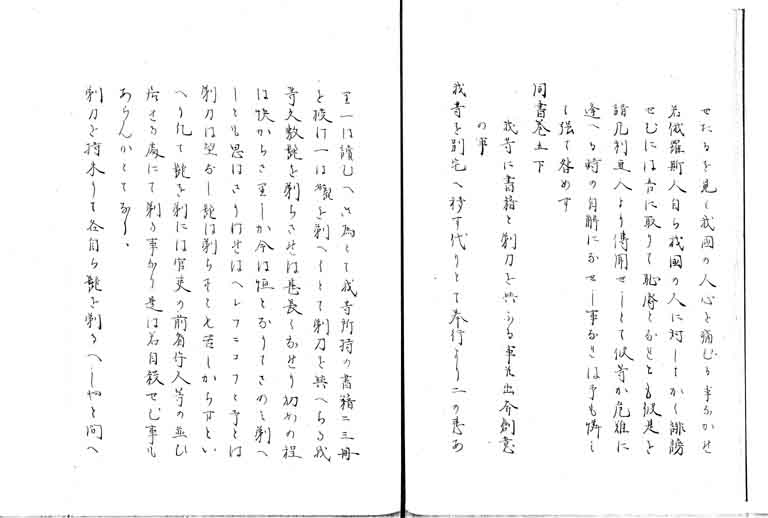 せたるを見て我国の人心を痛むる事なかせ
若俄羅斯人自ら我国の人に対してかく誹謗
せむには台に取りて恥辱となせとも彼是を
諳厄利亜人より傳聞せしとて彼等か危難に
逢へる時の自解になせし事なきは予も憐し
く強て咎めす
同書巻土下
我等に書籍と剃刀を與ふる事并出奔創意
の事
我等を別宅へ移す代りとて奉行より二の恵あ
里一は讀むへき為とて我等所持の書籍二三冊
を授け一は髭を剃へしとて剃刀を與へらる我
等久敷髭を剃らさせは甚長くなせり初めの程
は快からさ里しか今は恒となりてさのミ剃へ
しとも思はさりけせはヘレフニコフと予とは
剃刀は望なし髭は剃らすとも苦しからすとい
へり凡て髭を剃には官吏の前番侍人等の並ひ
居せる處にて剃る事なり是は若自殺せむ事も
あらんかとてなり、
剃刀を持来りて各自ら髭を剃るへしやと問へ